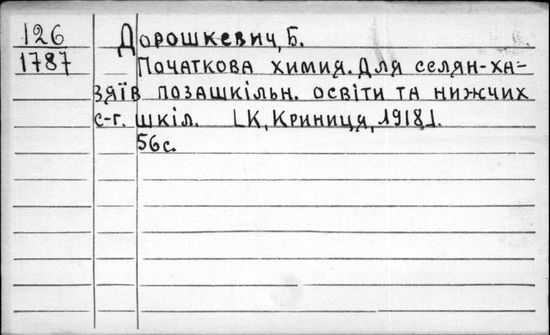 126
1787
Дорошкевич, Б.
Початкова химия. Для селян-ха-
зяїв позашкільн. освіти та нижчих
с-г. шкіл. [К, Криниця, 1918].
56с.